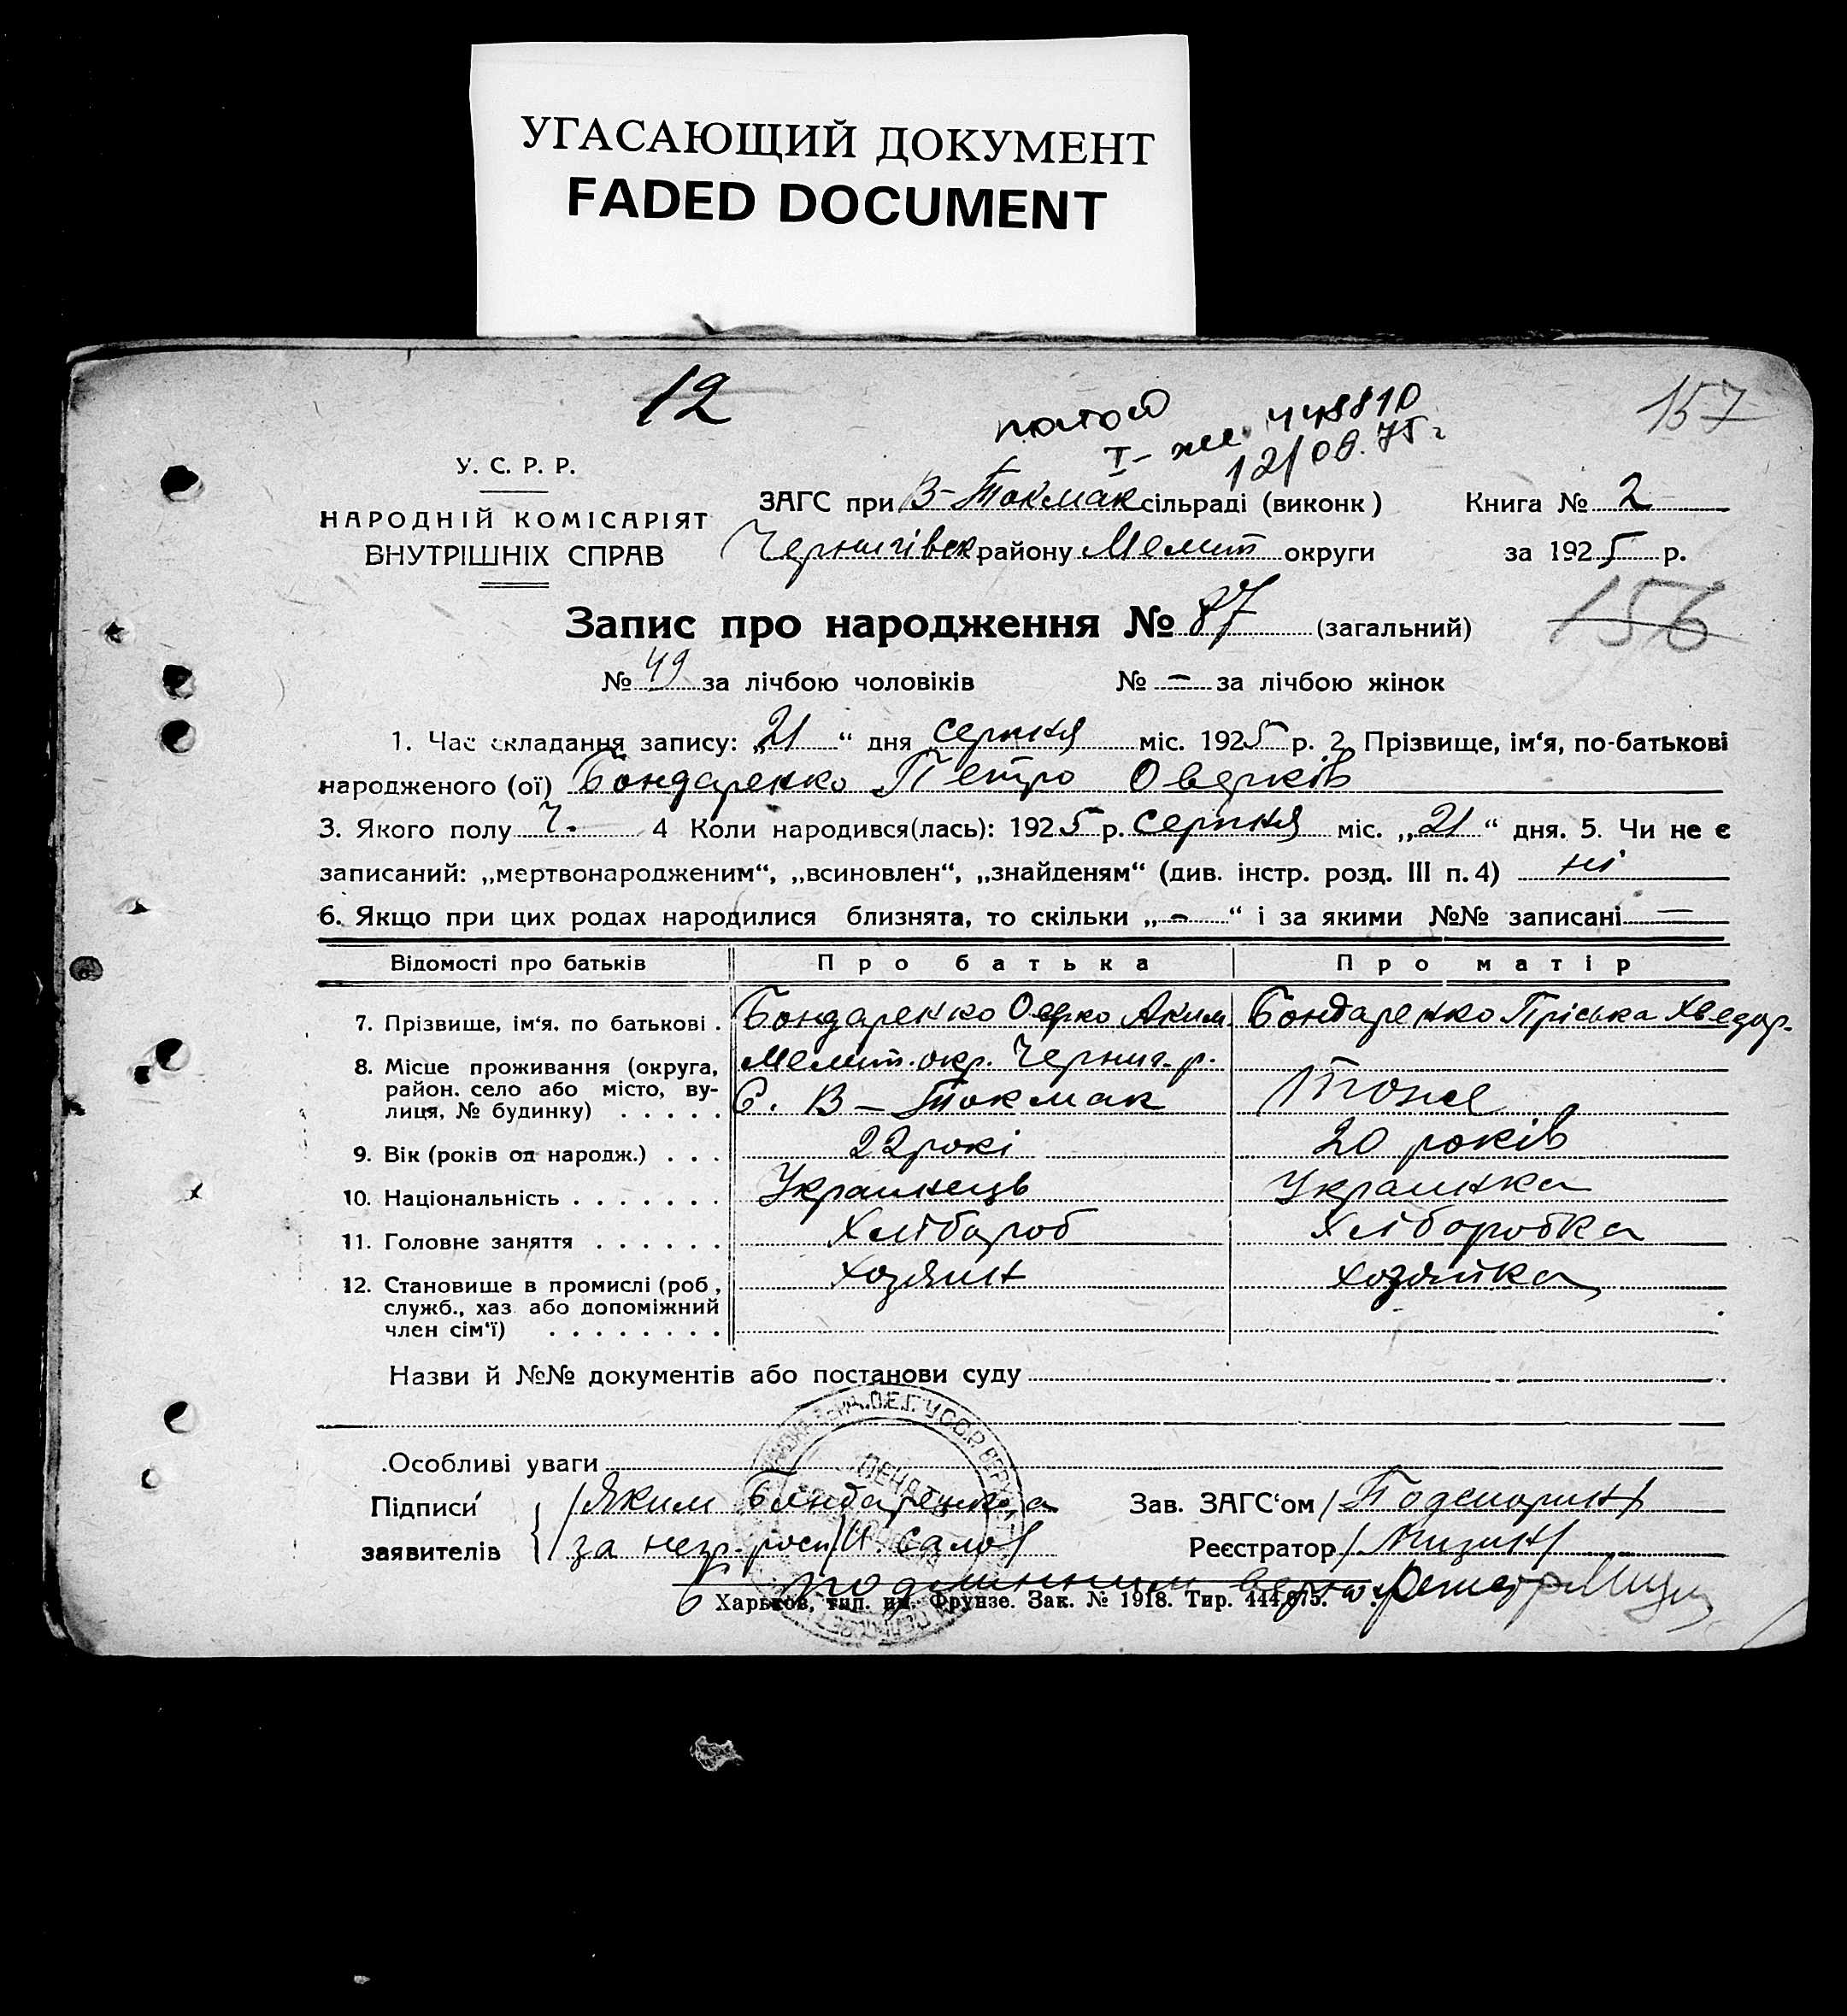 УГАСАЮЩИЙ ДОКУМЕНТ
FADED DOCUMENT
12
157
448810
I-
12/08.75г
У. С. Р. Р.
НАРОДНІЙ КОМІСАРІЯТ
ВНУТРІШНІХ СПРАВ
ЗАГС при В-Токмак сільраді (виконк)
Книга № 2
Чернигівск району Мелит округи
за 1925 р.
Запис про народження № 87 (загальний)
156
№ 49 за лічбою чоловіків № – за лічбою жінок
1. Час складання запису: „21“ дня серпня міс. 1925 р. 2. Прізвище, ім‘я, по-батькові
народженого (ої) Бондаренко Петро Оверків
3. Якого полу Ч. 4 Коли народився(лась): 1925 р. серпня міс. „21“ дня. 5. Чи не є
записаний: „мертвонародженим“, „всиновлен“, „знайденям“ (див. інстр. розд. III п. 4) ні
6. Якщо при цих родах народилися близнята, то скільки „–“ і за якими №№ записані —
Відомості про батьків Про батька Про матір
7. Прізвище, ім‘я, по батькові . Бондаренко Оверко Аким. Бондаренко Пріська Хведор.
8. Місце проживання (округа, Мелит. окр. Черниг. р.
район. село або місто, ву-
лиця, № будинку) . . . . . С. В – Токмак Тоже
9. Вік (років од народж.) . . . 22 рокі 20 років
10. Національність . . . . . . . Украинець Украинка
11. Головне заняття . . . . . . Хлібороб Хліборобка
12. Становище в промислі (роб, хозяин хозяйка
служб., хаз. або допоміжний
член сім‘ї) . . . . . . . .
Назви й №№ документів або постанови суду
Особливі уваги
Підписи
заявителів
/Яким Бондаренко
за негр. росп/И. Сало/
Зав. ЗАГС‘ом /Подсторин/
Реєстратор /Мизин/
С подлинним верно
Харьков, тип. им. Фрунзе. Зак. № 1918. Тир. 444,675.